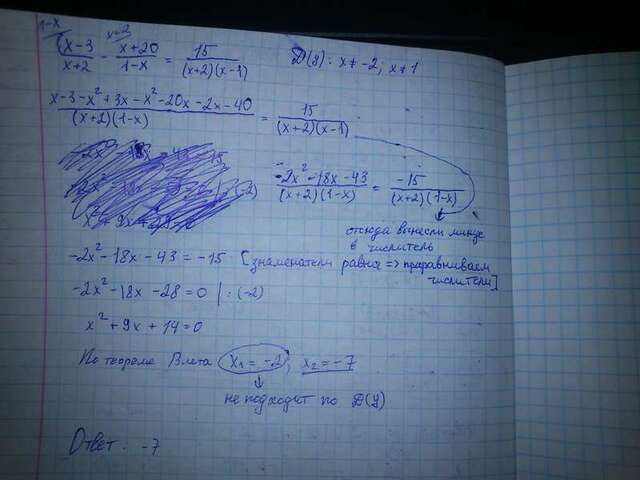 1-x x+2
(x-3)/(x+2) - (x+20)/(1-x) = 15/((x+2)(x-1)) Д(y): x≠-2; x≠1
(x-3-x²+3x-x²-20x-2x-40)/((x+2)(1-x)) = 15/((x+2)(x-1))
(-2x²-18x-43)/((x+2)(1-x)) = -15/((x+2)(1-x))
отсюда вынесли минус
в числитель
-2x²-18x-43=-15 [знаменатели равны => приравниваем
числители]
-2x²-18x-28=0 |:(-2)
x²+9x+14=0
По теореме Виета x₁=-2; x₂=-7
не подходит по Д(y)
Ответ: -7